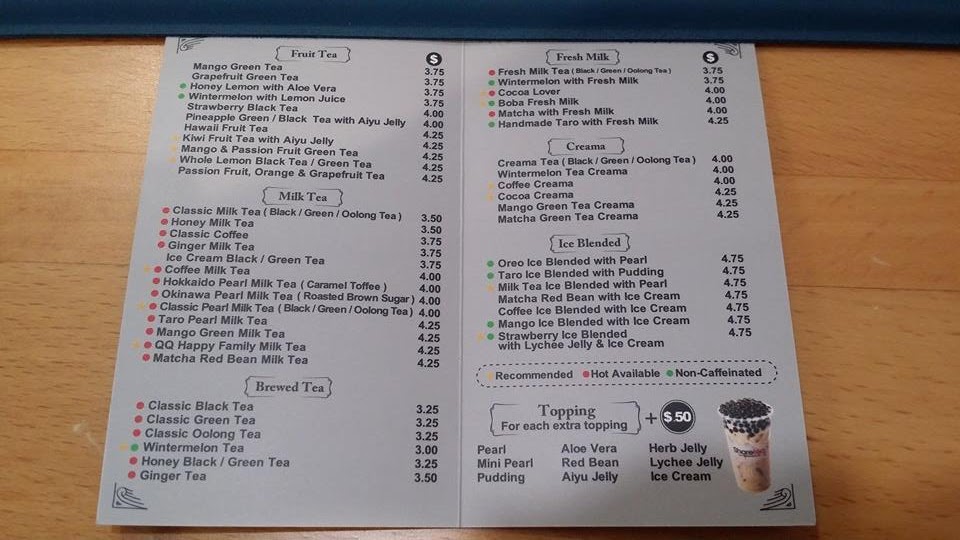 Fruit Tea $
Mango Green Tea 3.75
Grapefruit Green Tea 3.75
Honey Lemon with Aloe Vera 3.75
Wintermelon with Lemon Juice 3.75
Strawberry Black Tea 4.00
Pineapple Green / Black Tea with Aiyu Jelly 4.00
Hawaii Fruit Tea 4.25
Kiwi Fruit Tea with Aiyu Jelly 4.25
Mango & Passion Fruit Green Tea 4.25
Whole Lemon Black Tea / Green Tea 4.25
Passion Fruit, Orange & Grapefruit Tea 4.25
Milk Tea
Classic Milk Tea ( Black / Green / Oolong Tea ) 3.50
Honey Milk Tea 3.50
Classic Coffee 3.75
Ginger Milk Tea 3.75
Ice Cream Black / Green Tea 3.75
Coffee Milk Tea 4.00
Hokkaido Pearl Milk Tea ( Caramel Toffee ) 4.00
Okinawa Pearl Milk Tea ( Roasted Brown Sugar ) 4.00
Classic Pearl Milk Tea ( Black / Green / Oolong Tea ) 4.00
Taro Pearl Milk Tea 4.25
Mango Green Milk Tea 4.25
QQ Happy Family Milk Tea 4.25
Matcha Red Bean Milk Tea 4.25
Brewed Tea
Classic Black Tea 3.25
Classic Green Tea 3.25
Classic Oolong Tea 3.25
Wintermelon Tea 3.00
Honey Black / Green Tea 3.25
Ginger Tea 3.50
Fresh Milk $
Fresh Milk Tea ( Black / Green / Oolong Tea ) 3.75
Wintermelon with Fresh Milk 3.75
Cocoa Lover 4.00
Boba Fresh Milk 4.00
Matcha with Fresh Milk 4.00
Handmade Taro with Fresh Milk 4.25
Creama
Creama Tea ( Black / Green / Oolong Tea ) 4.00
Wintermelon Tea Creama 4.00
Coffee Creama 4.00
Cocoa Creama 4.25
Mango Green Tea Creama 4.25
Matcha Green Tea Creama 4.25
Ice Blended
Oreo Ice Blended with Pearl 4.75
Taro Ice Blended with Pudding 4.75
Milk Tea Ice Blended with Pearl 4.75
Matcha Red Bean with Ice Cream 4.75
Coffee Ice Blended with Ice Cream 4.75
Mango Ice Blended with Ice Cream 4.75
Strawberry Ice Blended 4.75
with Lychee Jelly & Ice Cream
Recommended Hot Available Non-Caffeinated
Topping
For each extra topping + $.50
Pearl Aloe Vera Herb Jelly
Mini Pearl Red Bean Lychee Jelly
Pudding Aiyu Jelly Ice Cream